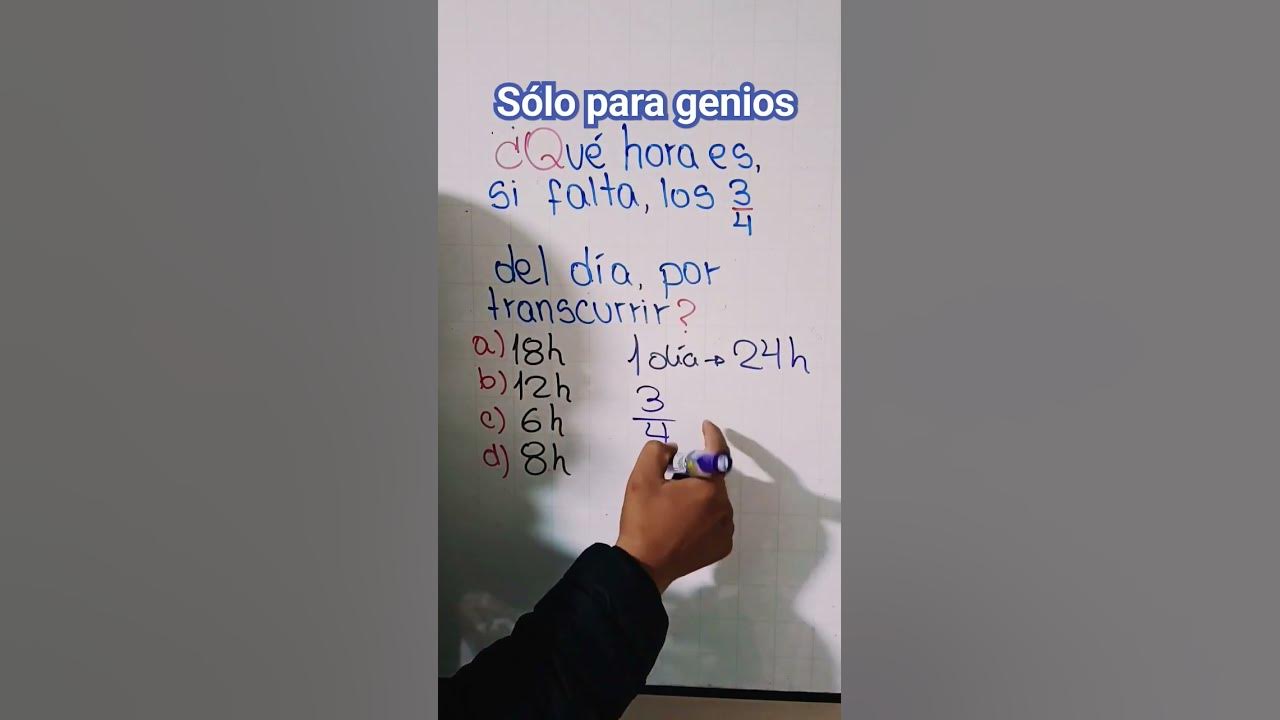 Sólo para genios
¿Qué hora es,
si falta, los 3/4
del día, por
transcurrir?
a) 18h
b) 12h
c) 6h
d) 8h
1 día → 24h
3/4